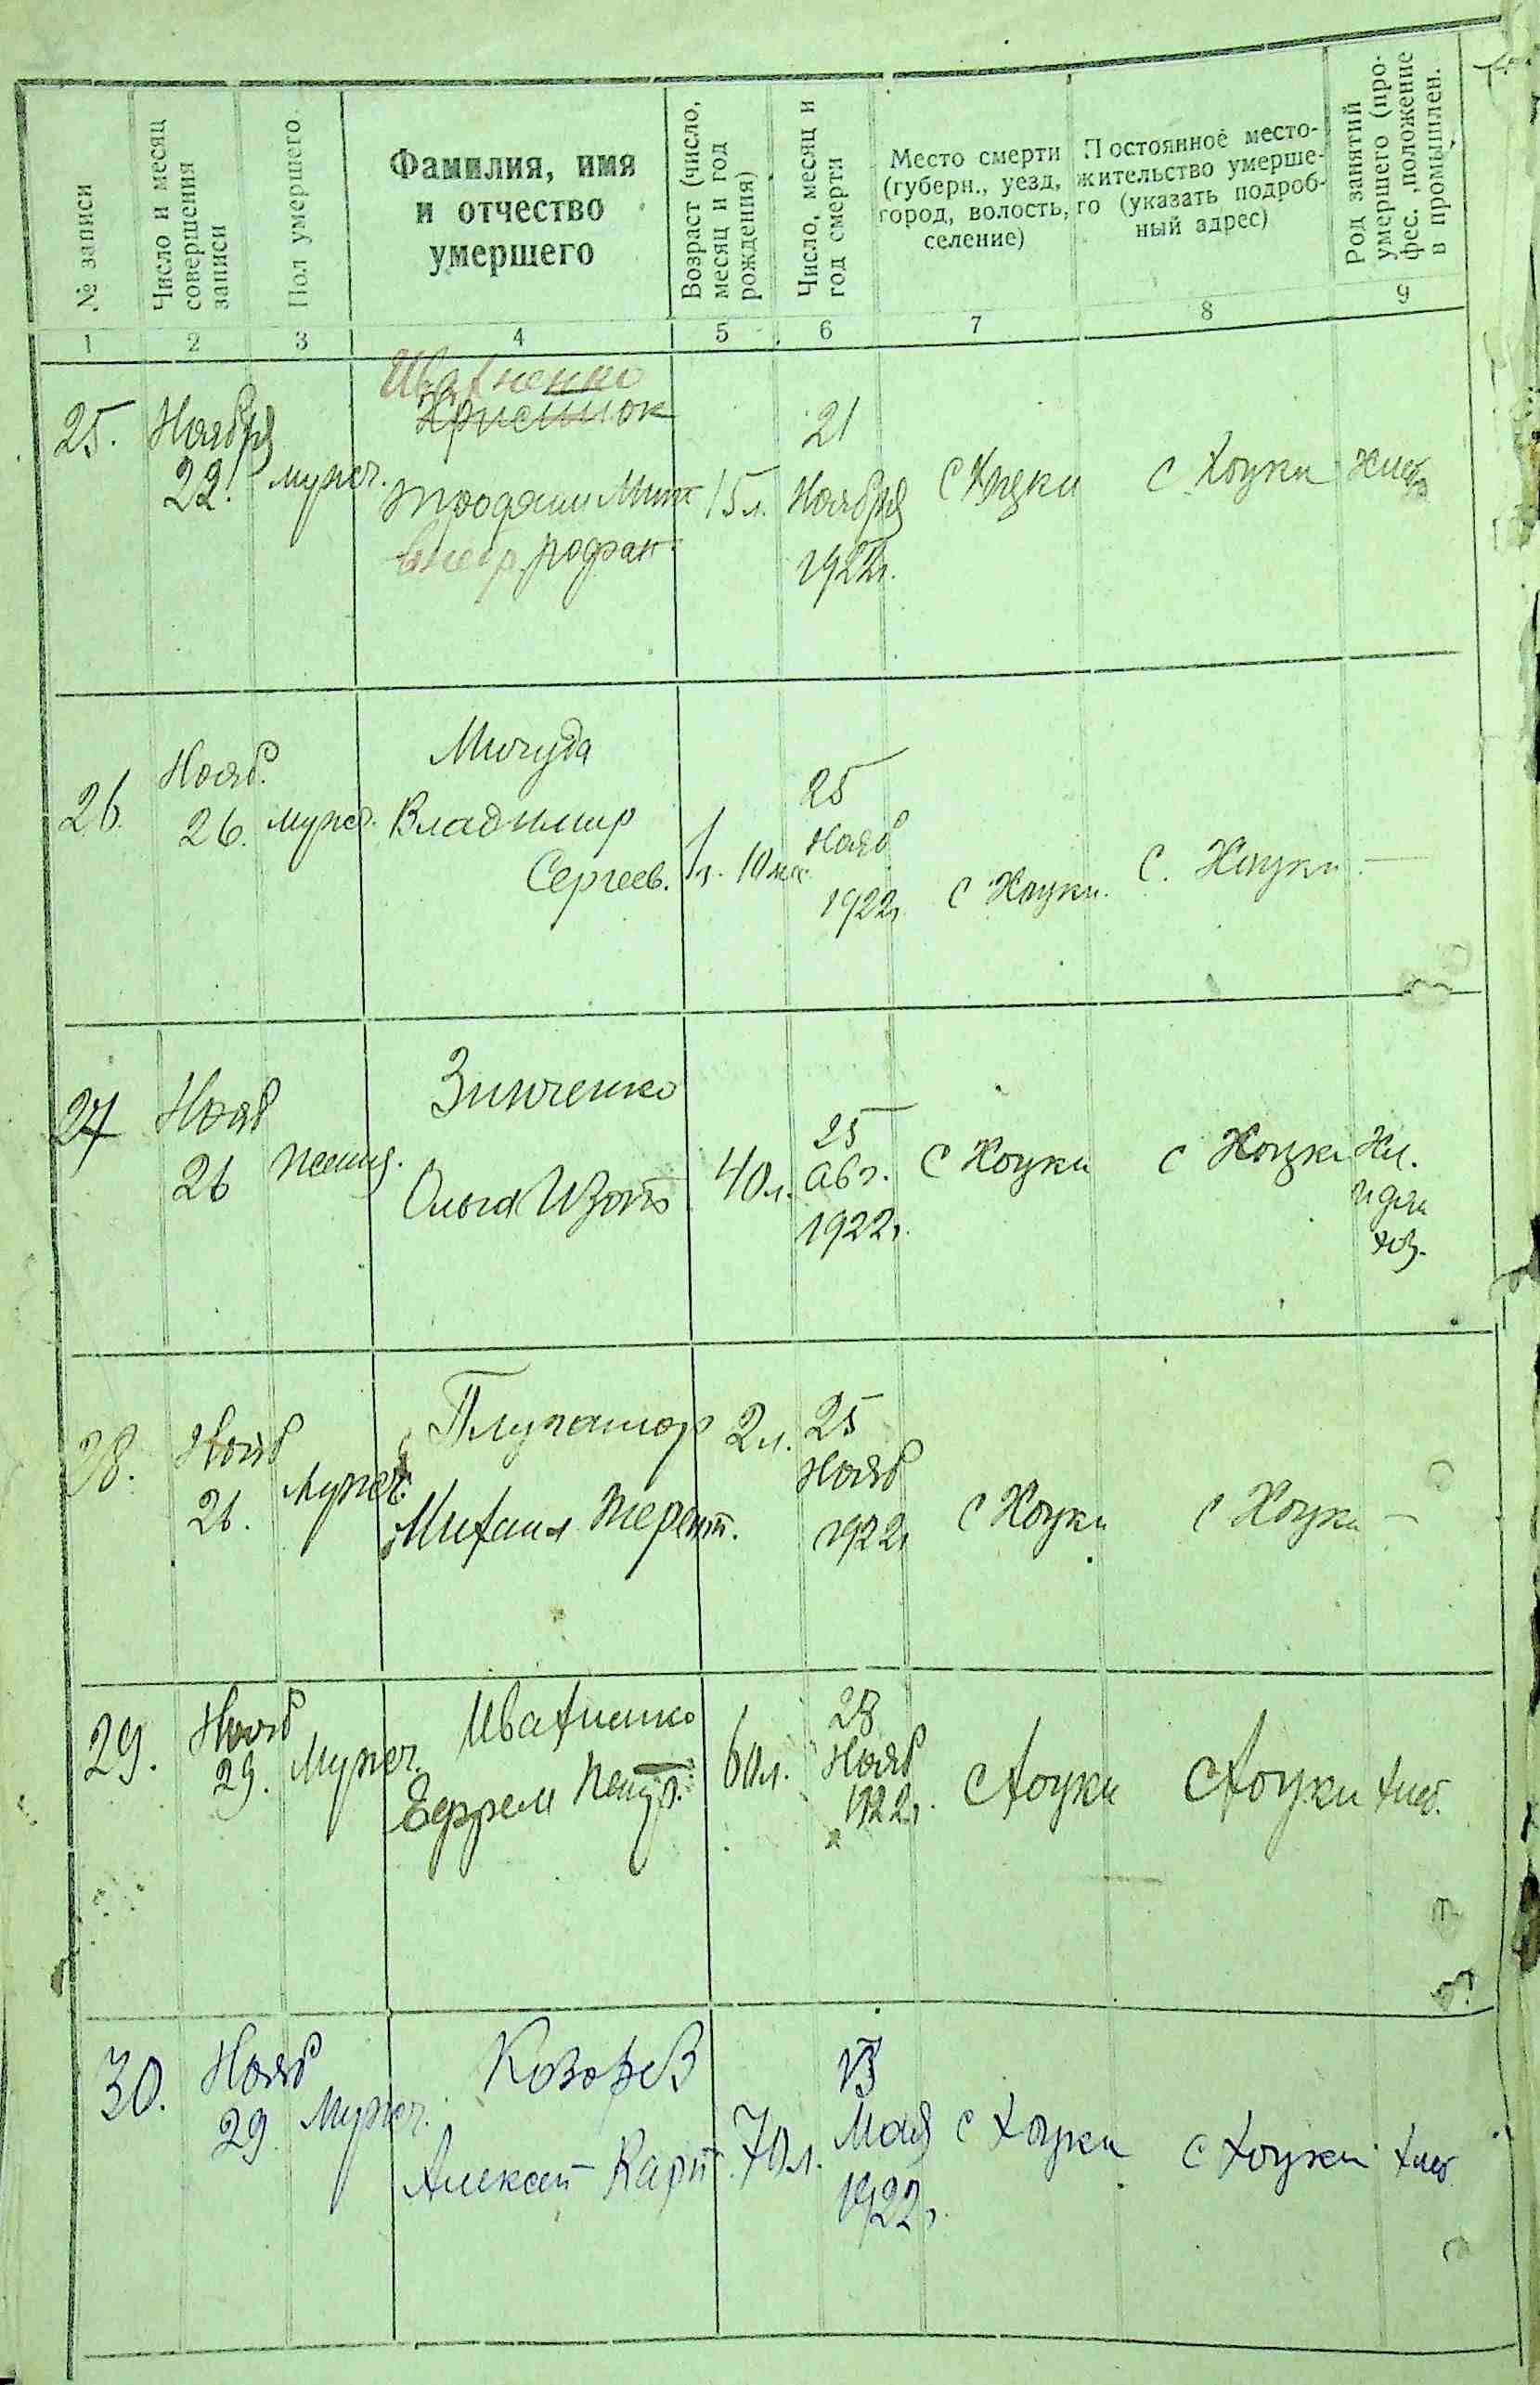 № записи
Число и месяц
совершения
записи
Пол умершего
Фамилия, имя
и отчество
умершего
Возраст (число,
месяц и год
рождения)
Число, месяц и
год смерти
Место смерти
(губерн., уезд,
город, волость,
селение)
Постоянное место-
жительство умерше-
го (указать подроб-
ный адрес)
Род занятий
умершего (про-
фес. ,положение
в промышлен.
1 2 3 4 5 6 7 8 9
Ивахненко
25. Ноября
22. мужч.
15 л.
21
Ноября
1922г.
с Хоцки
с Хоцки
Хлеб
26. Нояб.
26. мужч.
Мичуда
Владимир
Сергеев.
1 г. 10 мес
25
Нояб
1922г.
с Хоцки.
с. Хоцки —
27 Нояб
26 женщ.
Зинченко
Ольга Изот
40 л.
25
Авг.
1922г.
с Хоцки
с Хоцки
Хл.
28. Нояб
26. Мужч.
Плугатор
Михаил Терент.
2 л.
25
Нояб
1922г
с Хоцки
с Хоцки —
29. Нояб
29. Мужч.
Ивахненко
Ефрем Петр.
60 л.
28
Нояб
1922г.
с Хоцки
с Хоцки
Хлеб.
30. Нояб
29 Мужч.
Алексей
70 л.
Мая
1922г.
с Хоцки
с Хоцки
Хлеб